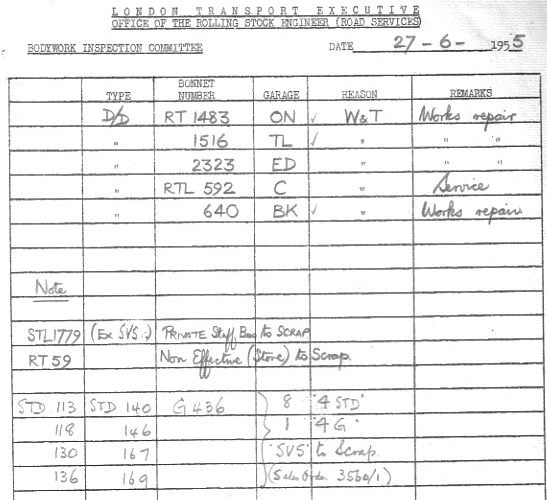 LONDON TRANSPORT EXECUTIVE
OFFICE OF THE ROLLING STOCK ENGINEER (ROAD SERVICES)
BODYWORK INSPECTION COMMITTEE DATE 27-6-1955
TYPE BONNET NUMBER GARAGE REASON REMARKS
D/D RT 1483 ON ✓ W&T Works repair
" 1516 TL ✓ " " "
" 2323 ED " " "
" RTL 592 C " Service
" 640 BK ✓ " Works repair
Note
STL1779 (Ex SVS.) PRIVATE Staff Bus to SCRAP
RT 59 Non Effective (Store) to Scrap.
STD 113 STD 140 G 436 8 "4 STD"
118 146 1 "4 G"
130 167 "SVS" to Scrap
136 169 (Sales Order 3560/1)